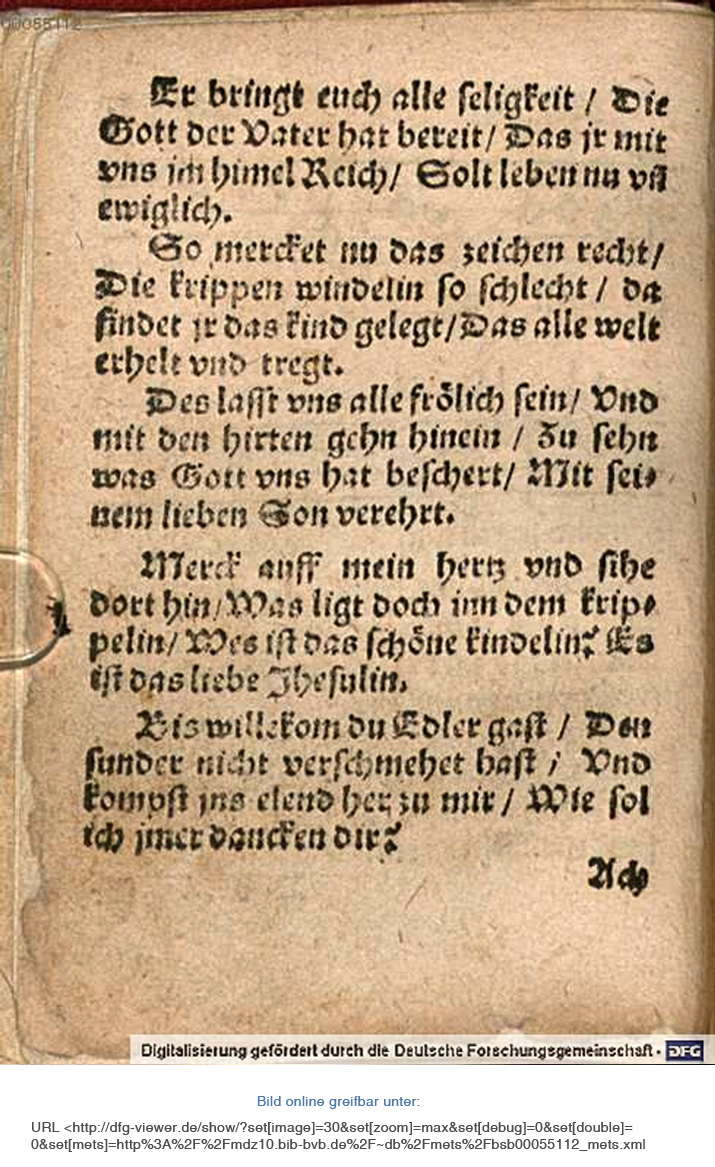 00055112
Er bringt euch alle seligkeit / Die
Gott der Vater hat bereit / Das jr mit
vns im himel Reich / Solt leben nu vñ
ewiglich.
So mercket nu das zeichen recht /
Die krippen windelin so schlecht / da
findet jr das kind gelegt / Das alle welt
erhelt vnd tregt.
Des lasst vns alle frölich sein / Vnd
mit den hirten gehn hinein / Zu sehn
was Gott vns hat beschert / Mit sei-
nem lieben Son verehrt.
Merck auff mein hertz vnd sihe
dort hin / Was ligt doch inn dem krip-
pelin / Wes ist das schöne kindelin? Es
ist das liebe Jhesulin.
Bis willekom du Edler gast / Den
sunder nicht verschmehet hast / Vnd
kompst jns elend her zu mir / Wie sol
ich jmer dancken dir?
Ach
Digitalisierung gefördert durch die Deutsche Forschungsgemeinschaft - DFG
Bild online greifbar unter:
URL <http://dfg-viewer.de/show/?set[image]=30&set[zoom]=max&set[debug]=0&set[double]=
0&set[mets]=http%3A%2F%2Fmdz10.bib-bvb.de%2F~db%2Fmets%2Fbsb00055112_mets.xml